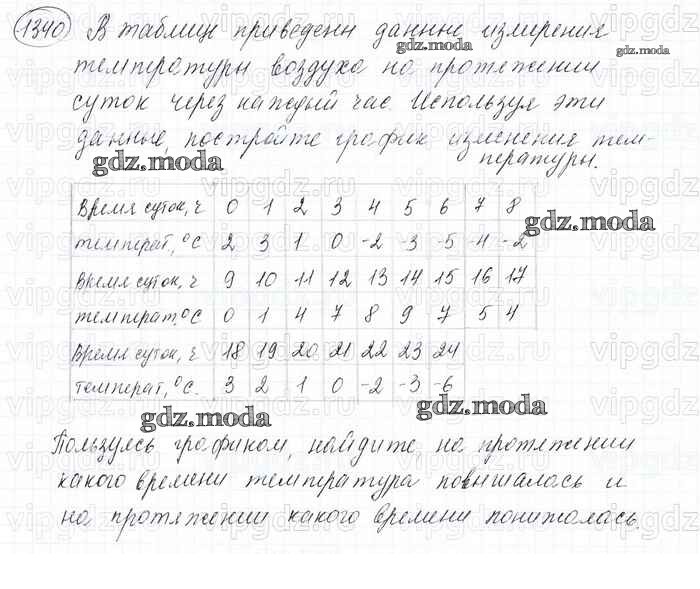 1340 В таблице приведены данные измерения
температуры воздуха на протяжении
суток через каждый час. Используя эти
данные, постройте график изменения тем-
пературы.
Время суток, ч 0 1 2 3 4 5 6 7 8
температ, °C 2 3 1 0 -2 -3 -5 -4 -2
Время суток, ч 9 10 11 12 13 14 15 16 17
температ. °C 0 1 4 7 8 9 7 5 4
Время суток, ч 18 19 20 21 22 23 24
температ, °C. 3 2 1 0 -2 -3 -6
Пользуясь графиком, найдите на протяжении
какого времени температура повышалась и
на протяжении какого времени понижалась.
gdz.moda
gdz.moda
gdz.moda
gdz.moda
gdz.moda
gdz.moda